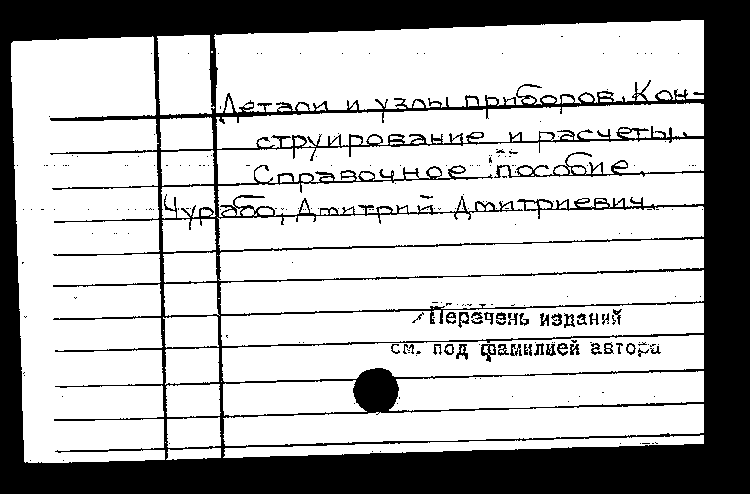 Детали и узлы приборов. Кон-
струирование и расчеты.
Справочное пособие.
Чурабо, Дмитрий Дмитриевич.
Перечень изданий
см. под фамилией автора